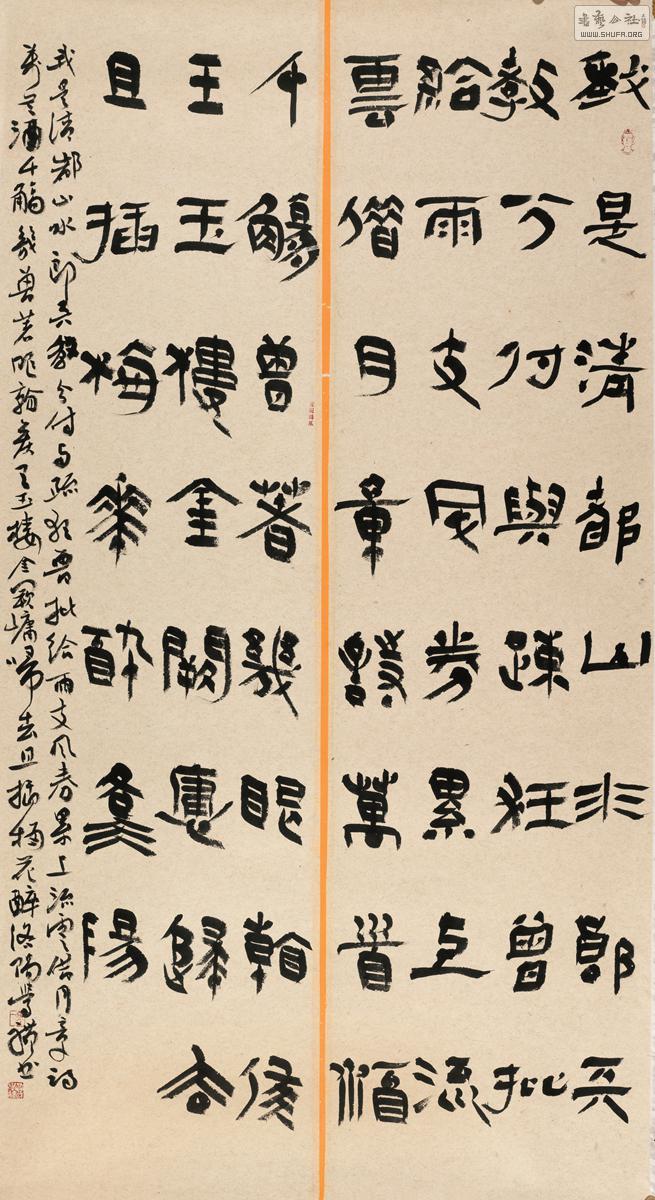 我是清都山水郎天
教分付與疎狂曾批
給雨支風券累上流
雲借月章詩萬首酒
千觴曾著幾眼看侯
王玉樓金闕慵歸去
且插梅花醉洛陽
我是清都山水郎天教分付与疏狂曾批給雨支风券累上流雲借月章詩
萬首酒千觴幾曾著眼看侯王玉樓金闕慵歸去且插梅花醉洛陽
書藝公社
WWW.SHUFA.ORG